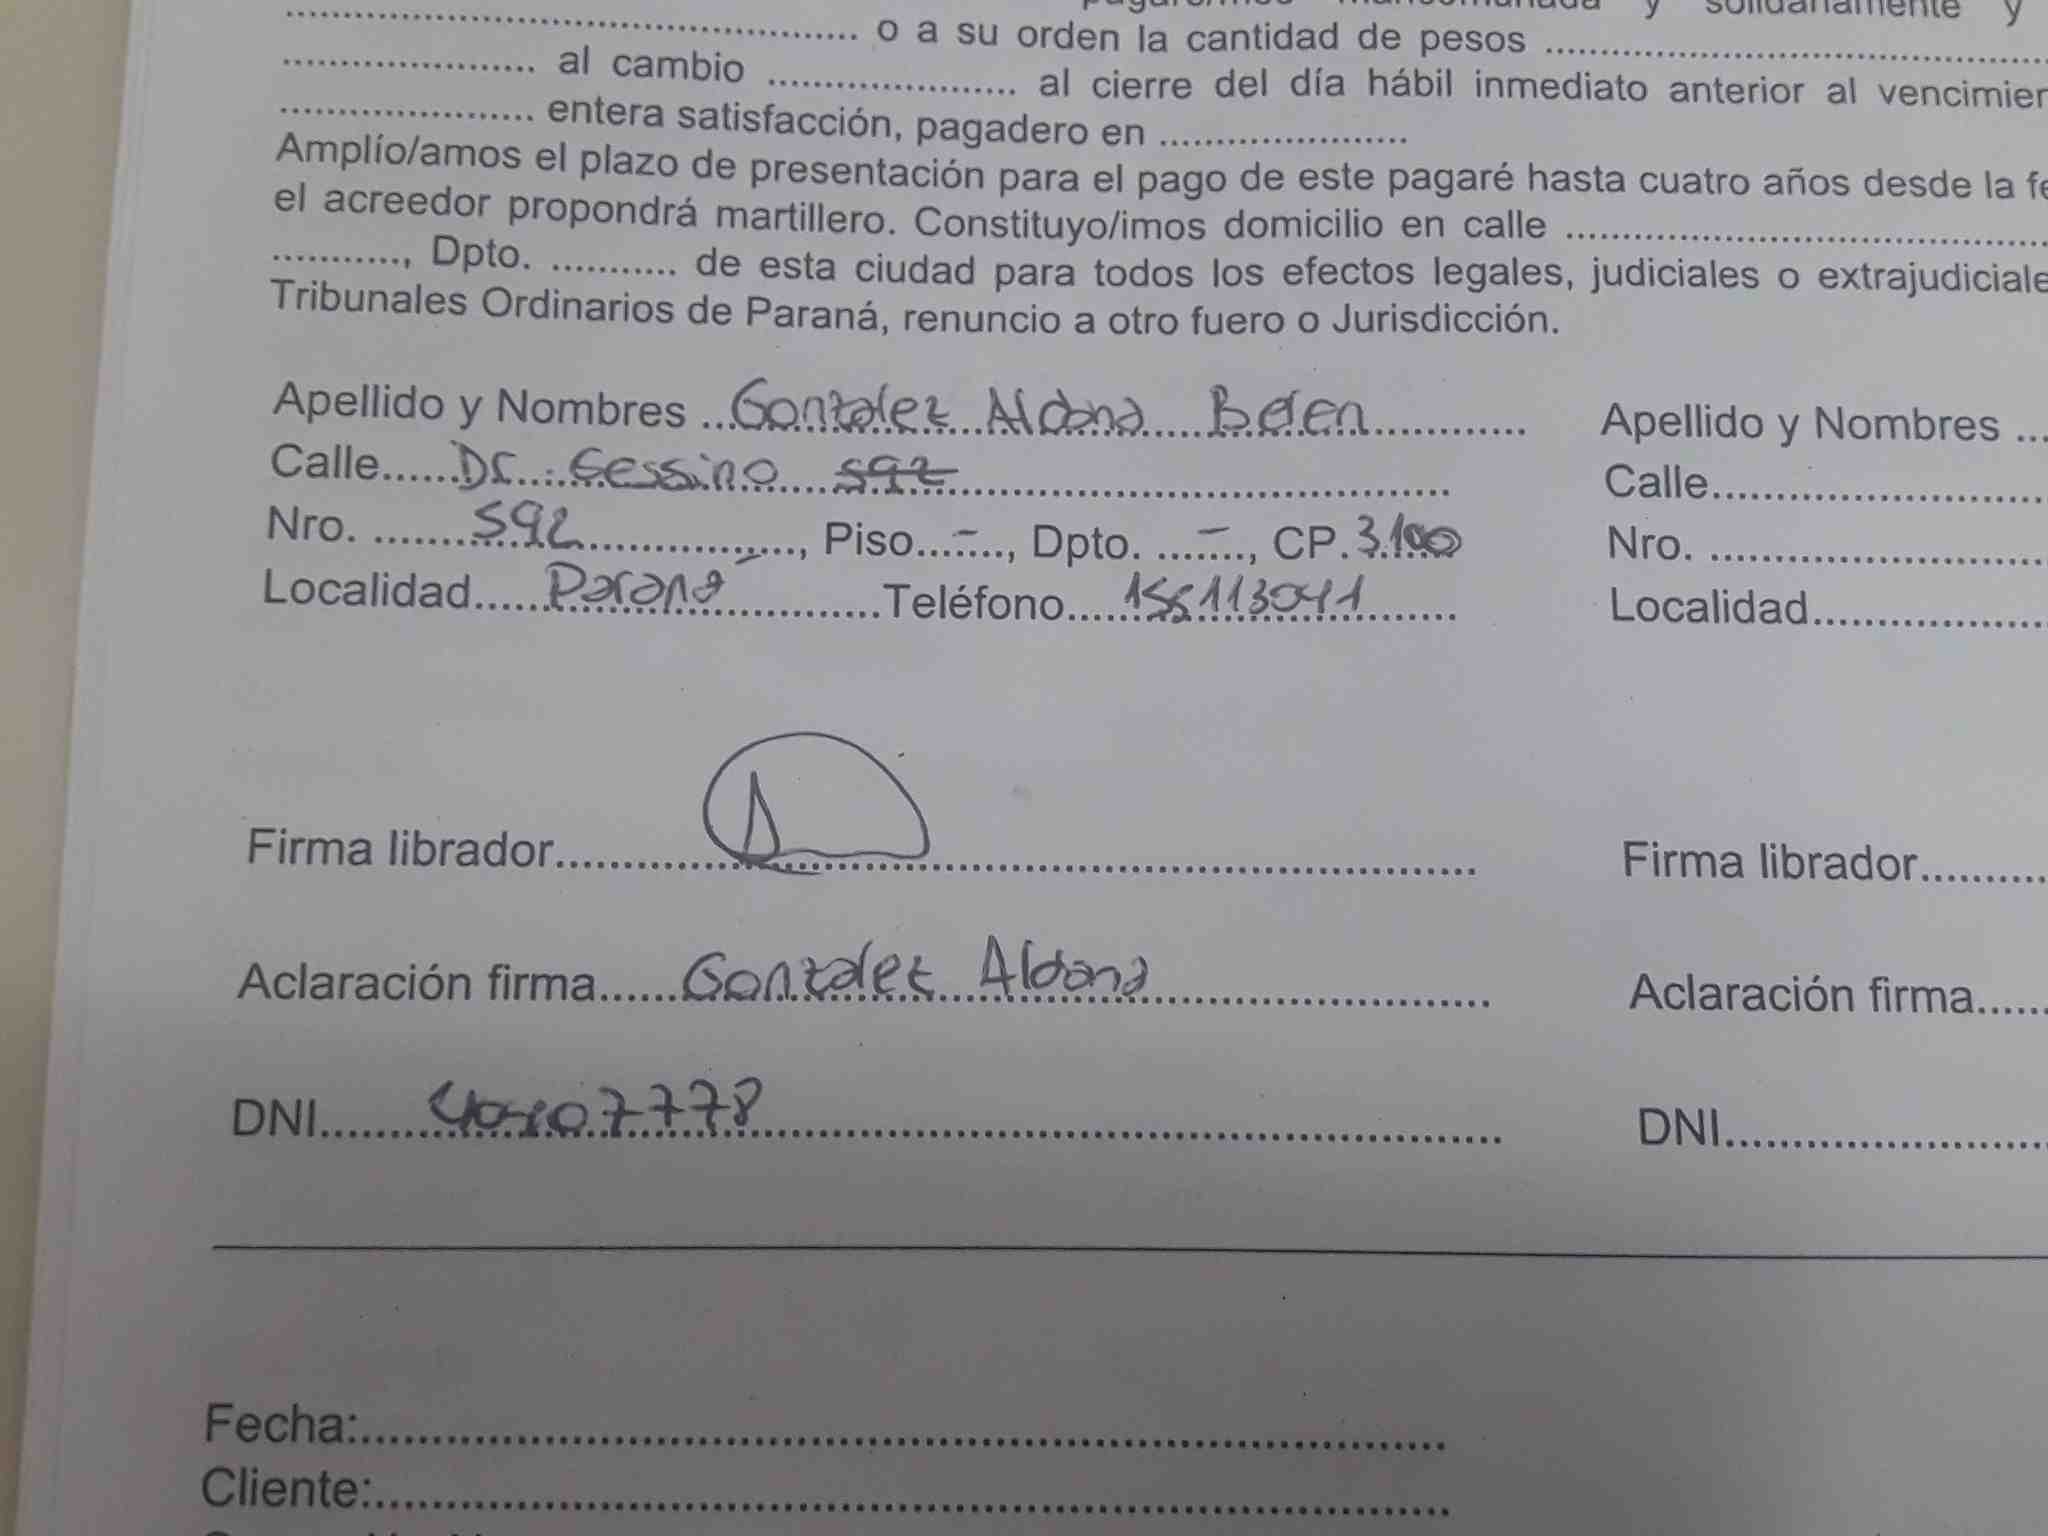 y solidariamente y
........ o a su orden la cantidad de pesos ........
........ al cambio ........ al cierre del día hábil inmediato anterior al vencimien
........ entera satisfacción, pagadero en ........
Amplío/amos el plazo de presentación para el pago de este pagaré hasta cuatro años desde la fe
el acreedor propondrá martillero. Constituyo/imos domicilio en calle ........
........, Dpto. ........ de esta ciudad para todos los efectos legales, judiciales o extrajudiciale
Tribunales Ordinarios de Paraná, renuncio a otro fuero o Jurisdicción.
Apellido y Nombres ...Gonzalez Aldana Belen........ Apellido y Nombres ...
Calle......Dr. Gessino 592........ Calle........
Nro. ........592........, Piso...-..., Dpto. ...-..., CP.3100 Nro. ........
Localidad......Paraná........Teléfono....155113041.... Localidad........
Firma librador........ Firma librador........
Aclaración firma......Gonzalez Aldana........ Aclaración firma......
DNI........40407778........ DNI........
Fecha:........
Cliente:........